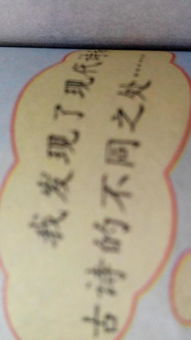 我发现了现代诗
古诗的不同之处……